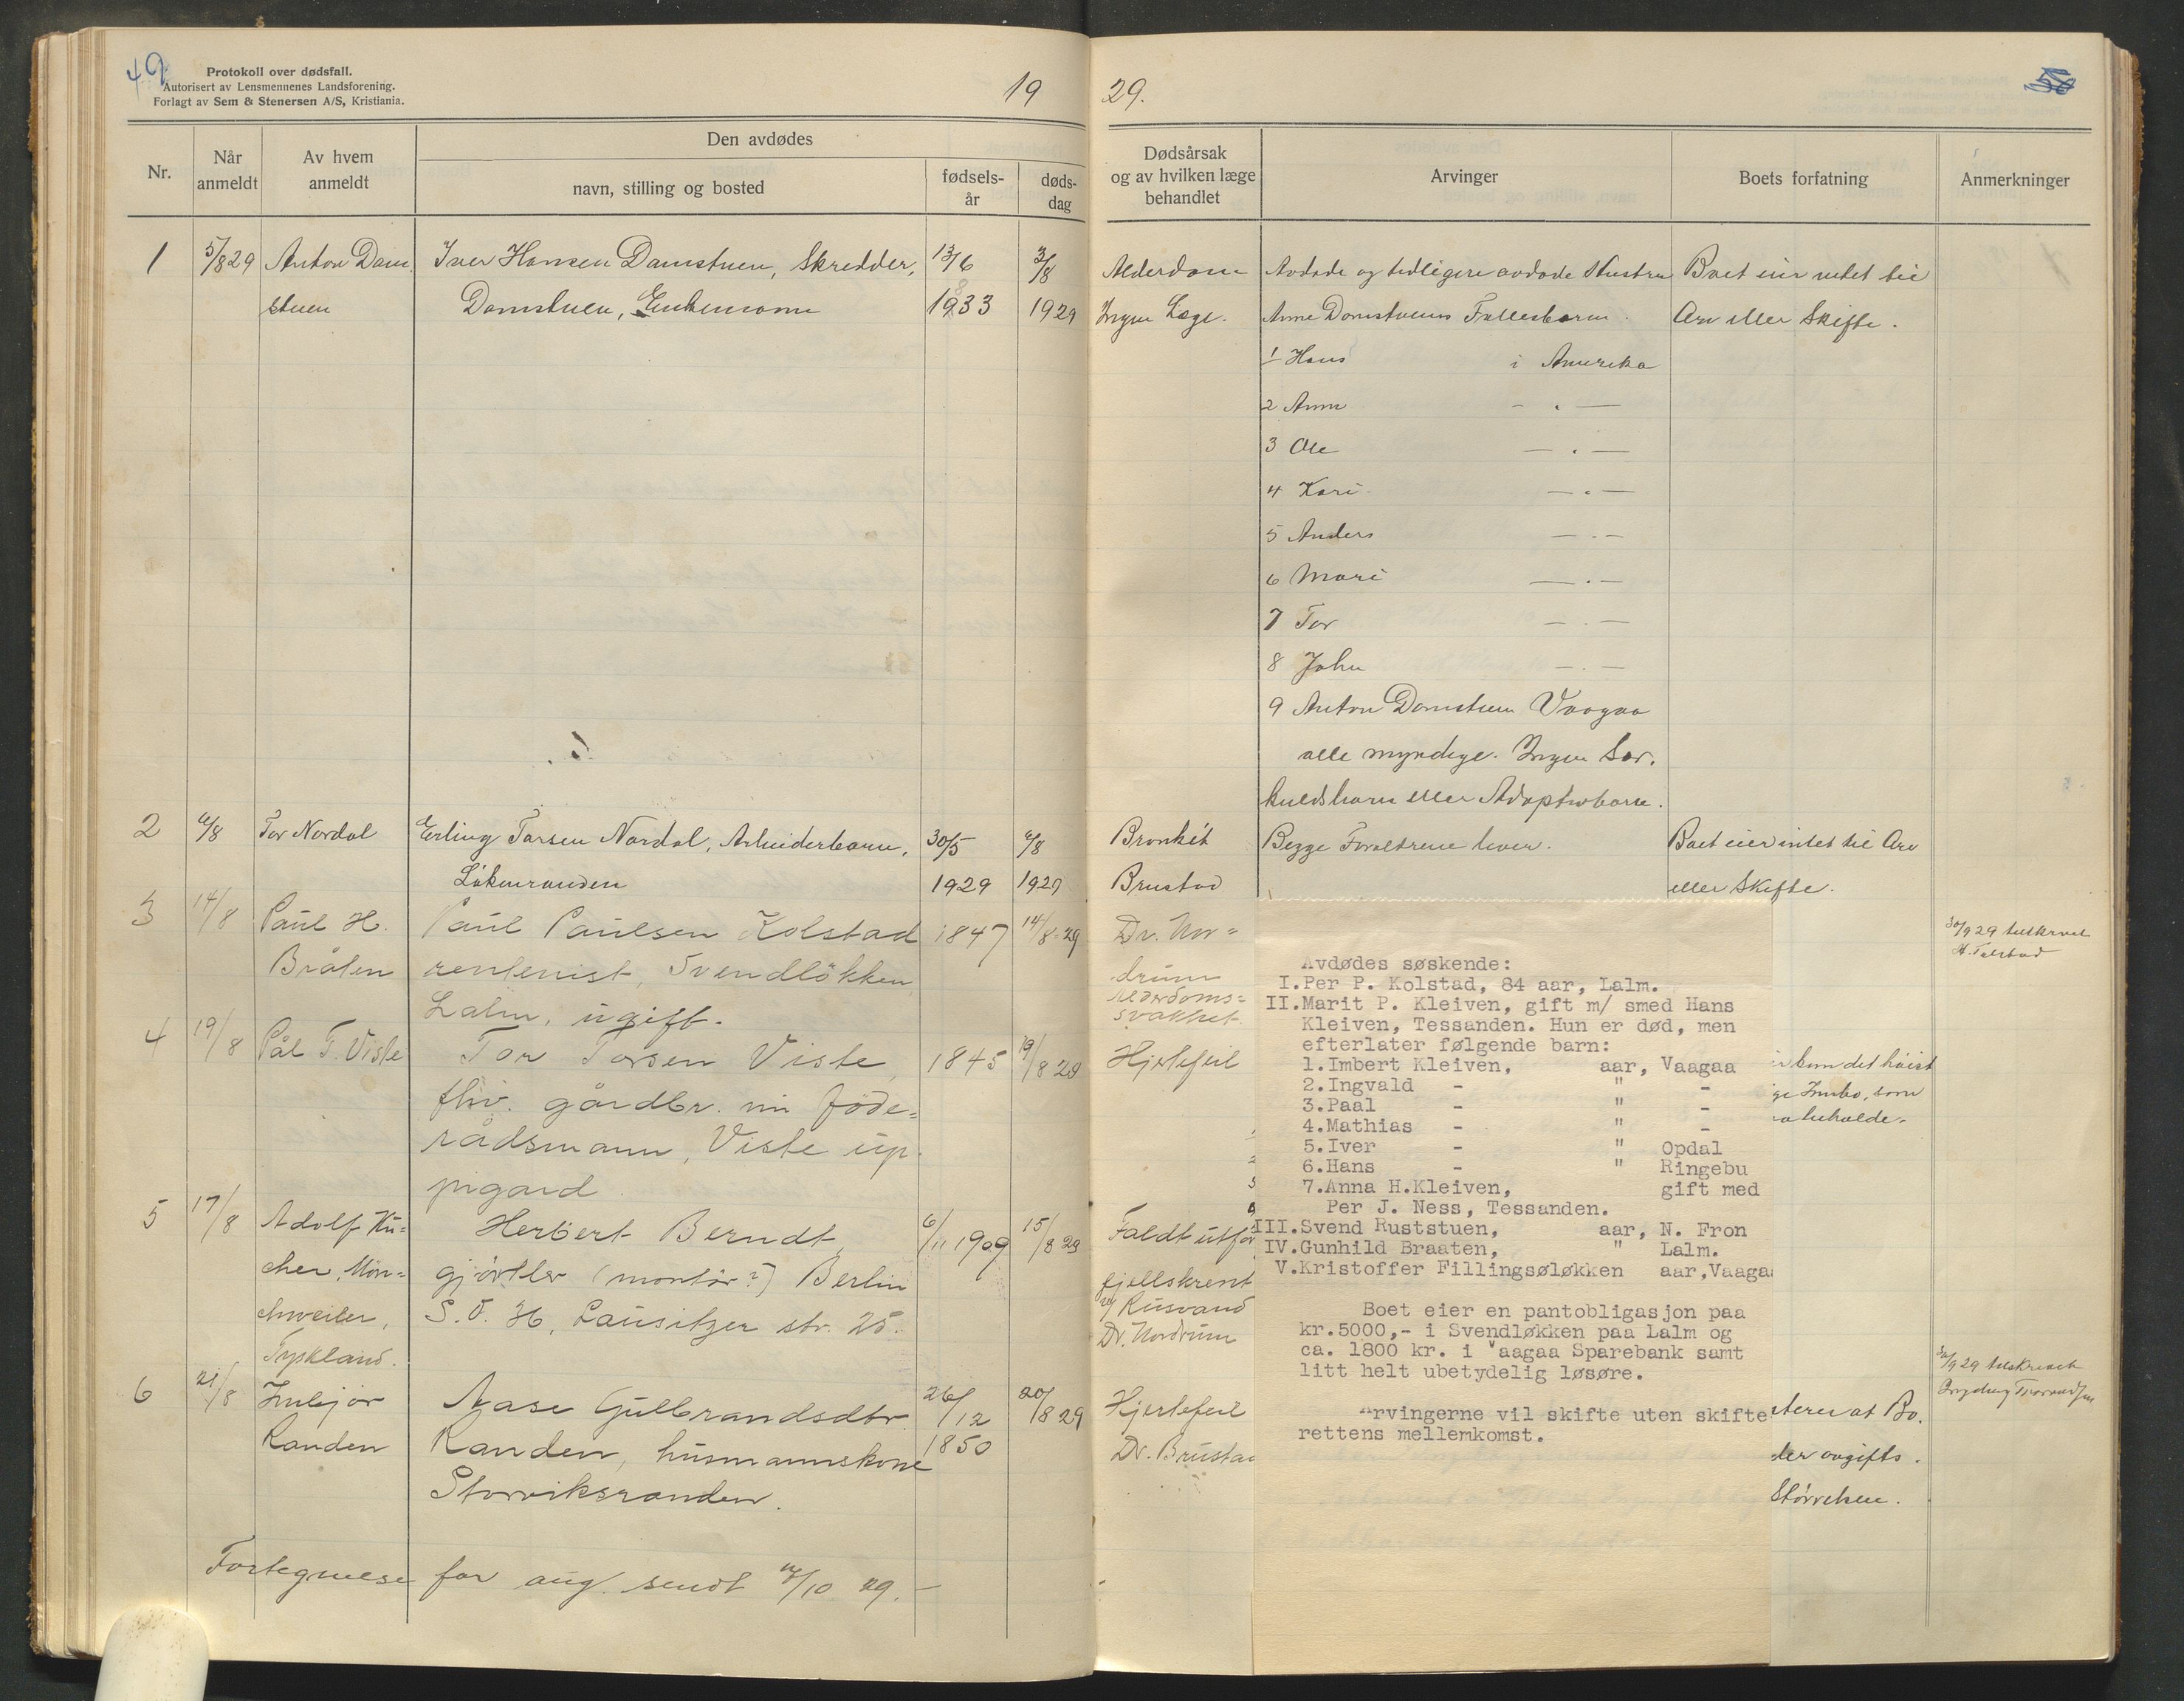 49
Protokoll over dødsfall.
Autorisert av Lensmennenes Landsforening.
Forlagt av Sem & Stenersen A/S, Kristiania.
19 29.
50
Nr.
Når anmeldt
Av hvem anmeldt
Den avdødes
navn, stilling og bosted
fødsels-år
døds-dag
Dødsårsak og av hvilken læge behandlet
Arvinger
Boets forfatning
Anmerkninger
1 5/8 29 Anton Dam Iver Hansen Damstuen, Skredder, 13/6 3/8 Alderdom Avdøde og tidligere avdøde Hustru Boet eier intet til
stuen Damstuen, Enkemann 1833 1929 Ingen Læge. Anne Damstuens Fællesbarn. Arv eller Skifte.
1 Hans i Amerika
2 Anne - " -
3 Ole - " -
4 Kari - " -
5 Anders - " -
6 Mari - " -
7 Tor - " -
8 John - " -
9 Anton Damstuen Vaagaa
alle myndige. Ingen Sær.
kuldsbarn eller Adoptivbarn.
2 6/8 Tor Nordal Erling Torsen Nordal, Arbeiderbarn, 30/5 6/8 Bronkit Begge Forældrene lever. Boet eier intet til Arv
Lökenranden 1929 1929 Brustad eller Skifte.
3 14/8 Paul H. Paul Paulsen Kolstad 1847 14/8-29 Dr. Nor=
Bråten rentenist, Svendlökken drum
Lalm, ugift. Alderdoms=
svakhet
30/9 29 tilskrevet
4 19/8 Pål T. Viste Tor Torsen Viste, 1845 19/8 29 Hjertefeil
fhv. gårdbr. nu föde=
rådsmann, Viste up
pigard.
5 17/8 Adolf Ku= Herbert Berndt, 6/11 1909 15/8 29 Faldt utfor
cher, Mön= gjörtler (montör?) Berlin fjellskrent
chweiler, S.O. 36, Lausitzer str. 25. v/ Rusvand
Tyskland. Dr. Nordrum
6 21/8 Imbjör Aase Gulbrandsdtr. 26/12 20/8 29 Hjertefeil
Randen Randen, husmannskone 1850 Dr. Brustad
Storviksranden.
Fortegnelse for aug. sendt /10 29. -
Avdødes søskende:
I.Per P. Kolstad, 84 aar, Lalm.
II.Marit P. Kleiven, gift m/ smed Hans
Kleiven, Tessanden. Hun er død, men
efterlater følgende barn:
1.Imbert Kleiven, aar, Vaagaa
2.Ingvald - " -
3.Paal - " -
4.Mathias - " -
5.Iver - " Opdal
6.Hans - " Ringebu
7.Anna H.Kleiven, gift med
Per J. Ness, Tessanden.
III.Svend Ruststuen, aar, N. Fron
IV.Gunhild Braaten, " Lalm.
V.Kristoffer Fillingsøløkken aar,Vaagaa
Boet eier en pantobligasjon paa
kr.5000,- i Svendløkken paa Lalm og
ca. 1800 kr. i Vaagaa Sparebank samt
litt helt ubetydelig løsøre.
Arvingerne vil skifte uten skifte
rettens mellemkomst.
kun det höist
ge Innbo, som
beholde.
30/9 29 tilskrevet
at Bo.
avgifts.
Störrelsen.